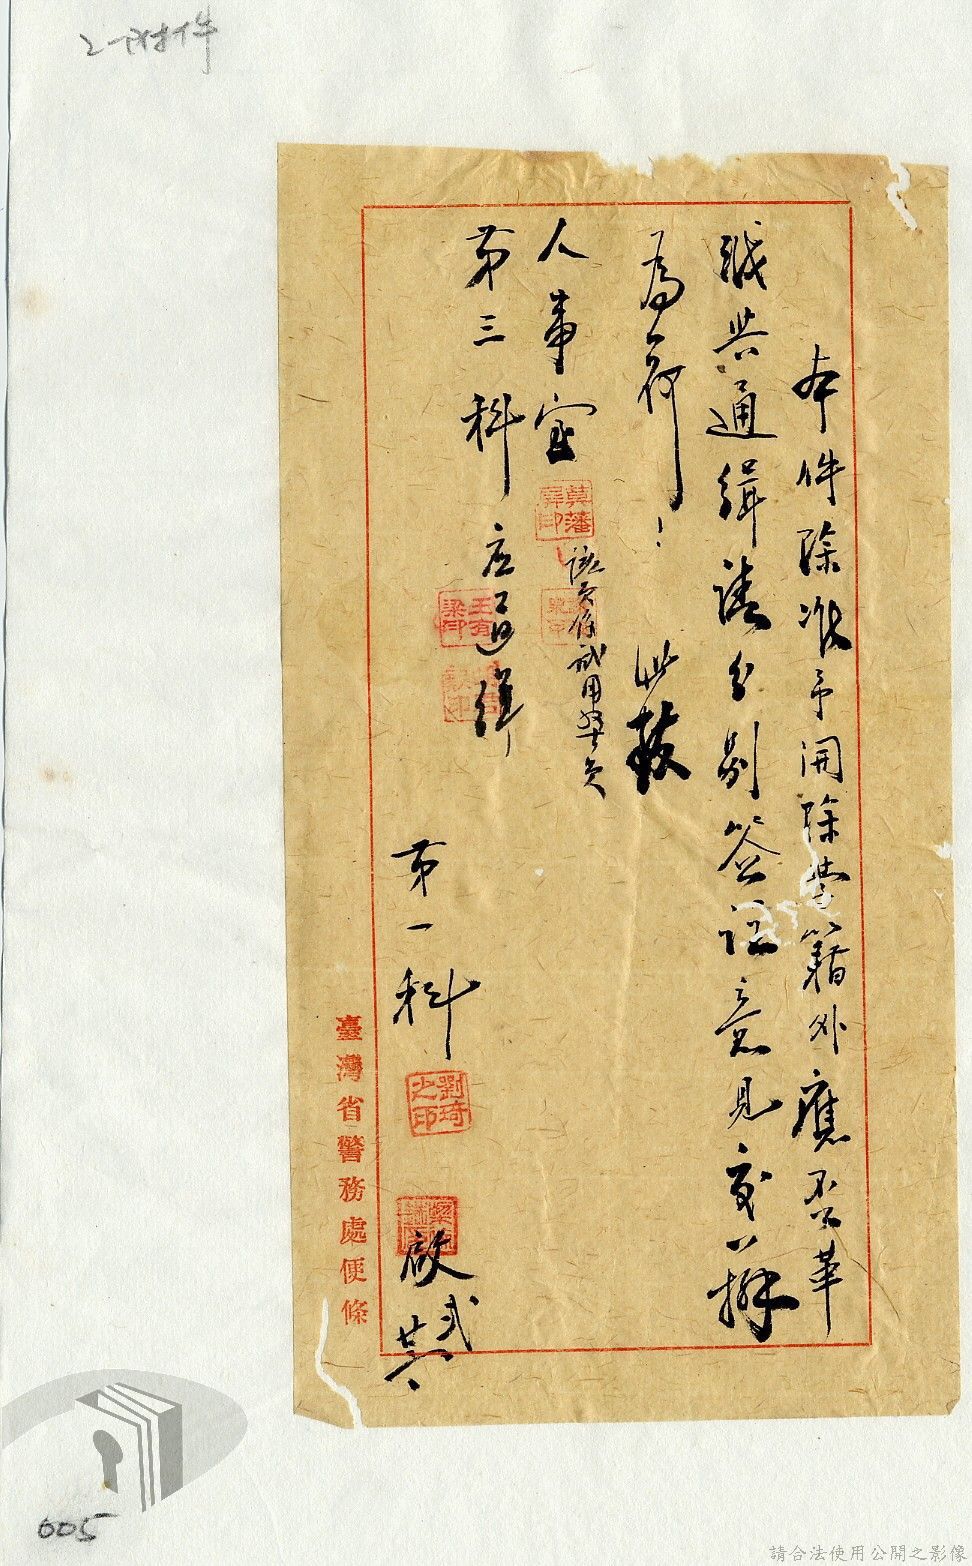 2-附件
本件除准予開除黨籍外應否革
職共通緝請分別簽註意見交辦
為荷！ 此致
人事室
該員係試用警員
第三科 应通緝
第一科
啟 弍
臺灣省警務處便條
劉琦之印
005
請合法使用公開之影像